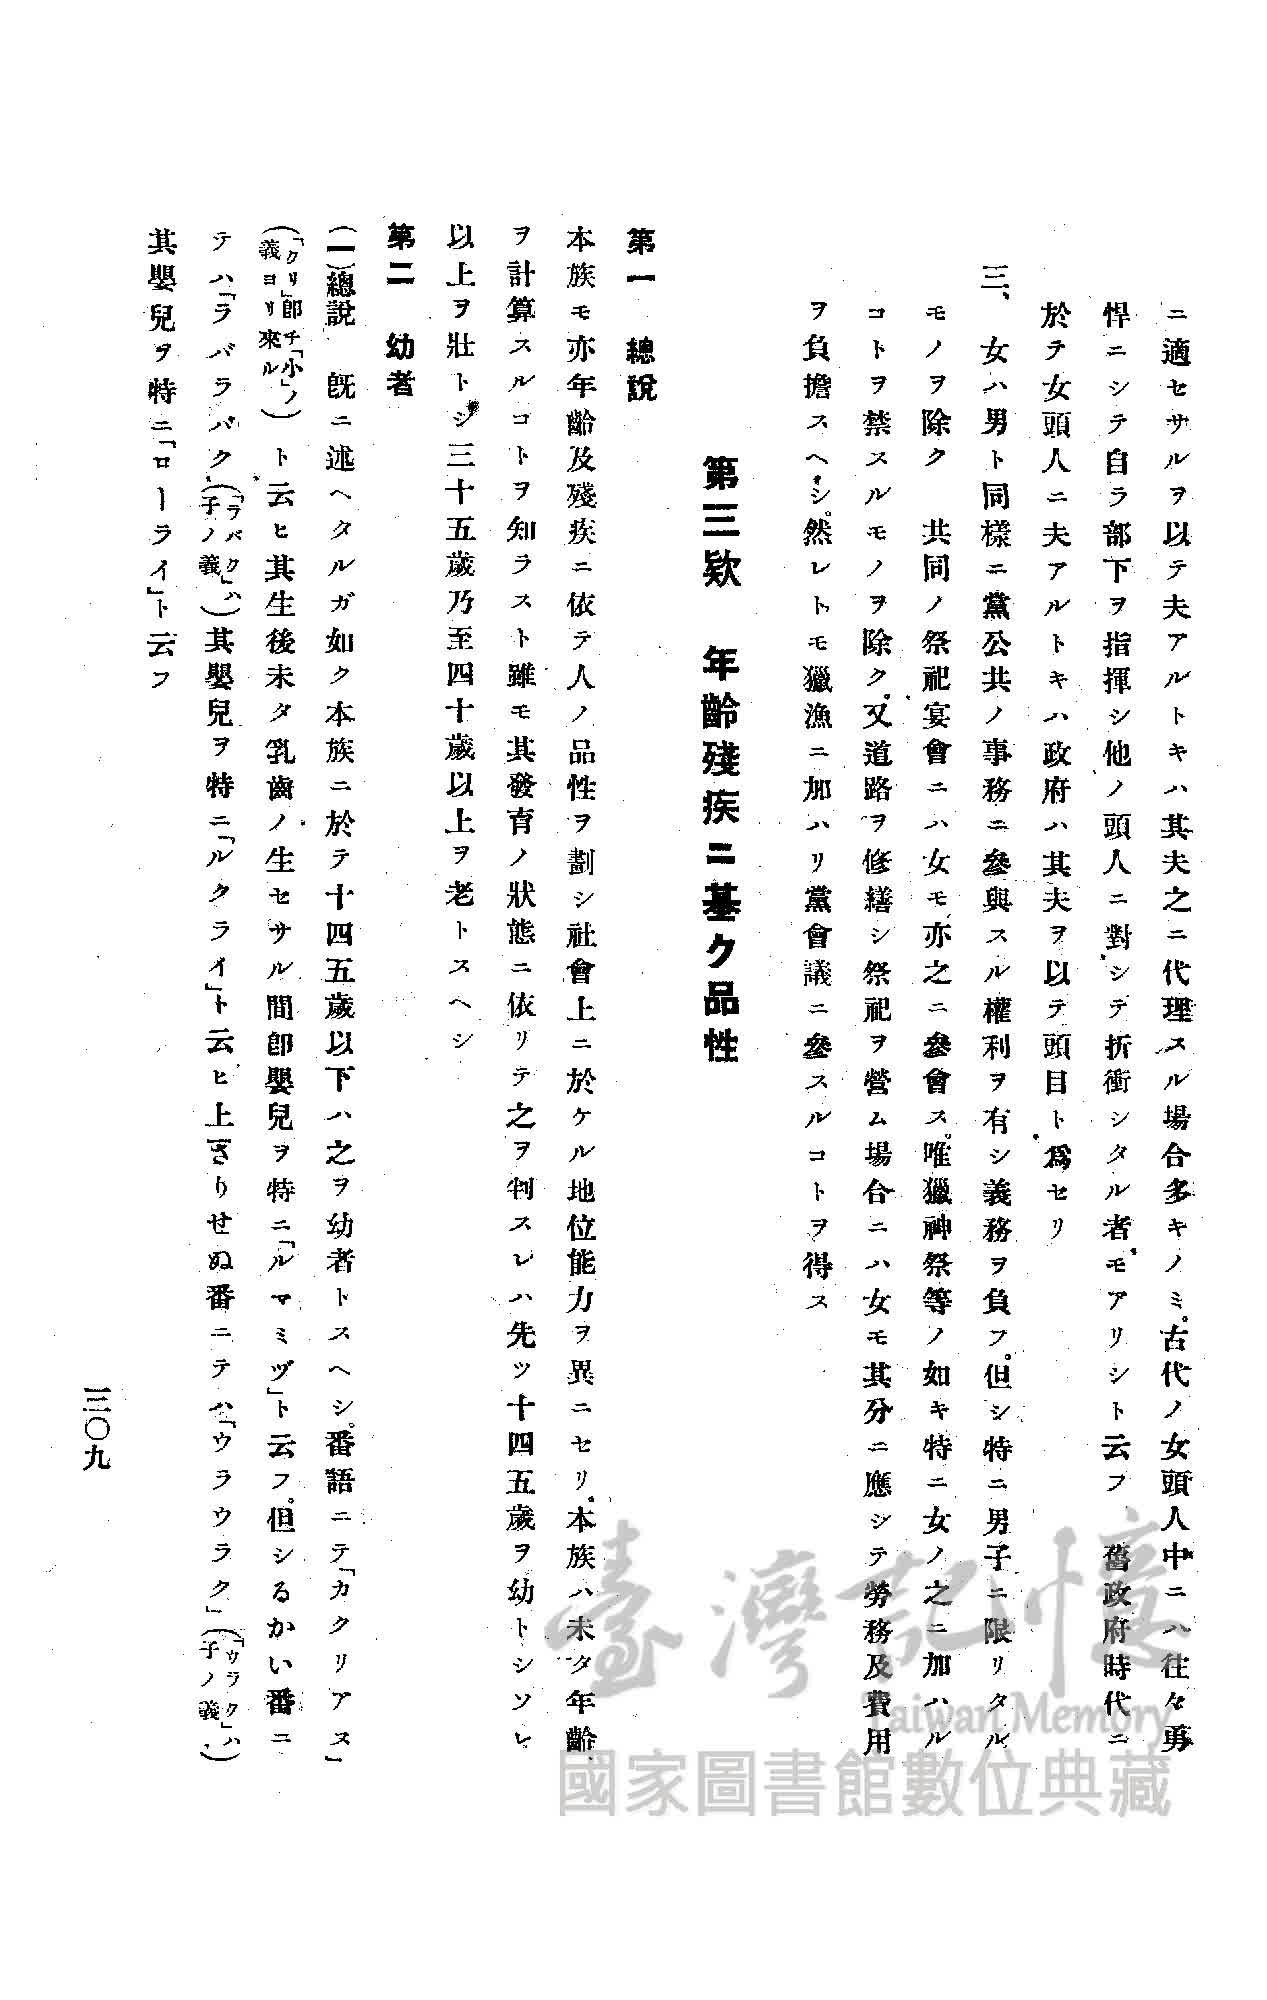 ニ適セサルヲ以テ夫アルトキハ其夫之ニ代理スル場合多キノミ。古代ノ女頭人中ニハ往々勇
悍ニシテ自ラ部下ヲ指揮シ他ノ頭人ニ對シテ折衝シタル者モアリシト云フ　舊政府時代ニ
於テ女頭人ニ夫アルトキハ政府ハ其夫ヲ以テ頭目ト爲セリ
三、女ハ男ト同樣ニ黨公共ノ事務ニ參與スル權利ヲ有シ義務ヲ負フ。但シ特ニ男子ニ限リタル
モノヲ除ク　共同ノ祭祀宴會ニハ女モ亦之ニ參會ス。唯獵神祭等ノ如キ特ニ女ノ之ニ加ハル
コトヲ禁スルモノヲ除ク。又道路ヲ修繕シ祭祀ヲ營ム場合ニハ女モ其分ニ應シテ勞務及費用
ヲ負擔スヘシ。然レトモ獵漁ニ加ハリ黨會議ニ參スルコトヲ得ス
第三欵　年齡殘疾ニ基ク品性
第一　總說
本族モ亦年齡及殘疾ニ依テ人ノ品性ヲ劃シ社會上ニ於ケル地位能力ヲ異ニセリ。本族ハ未タ年齡
ヲ計算スルコトヲ知ラスト雖モ其發育ノ狀態ニ依リテ之ヲ判スレハ先ツ十四五歲ヲ幼トシソレ
以上ヲ壯トシ三十五歲乃至四十歲以上ヲ老トスヘシ
第二　幼者
(一)總說　旣ニ述ヘタルガ如ク本族ニ於テ十四五歲以下ハ之ヲ幼者トスヘシ。番語ニテ「カクリアス」
(「クリ」卽チ「小」ノ義ヨリ來ル)ト云ヒ其生後未タ乳齒ノ生セサル間卽嬰兒ヲ特ニ「ルマミヅ」ト云フ。但シるかい番ニ
テハ「ラバラバク」(「ラバク」ハ子ノ義)其嬰兒ヲ特ニ「ルクライ」ト云ヒ上さりせぬ番ニテハ「ウラウラク」(「ウラク」ハ子ノ義)
其嬰兒ヲ特ニ「ローライ」ト云フ
三〇九
臺灣記憶
Taiwan Memory
國家圖書館數位典藏